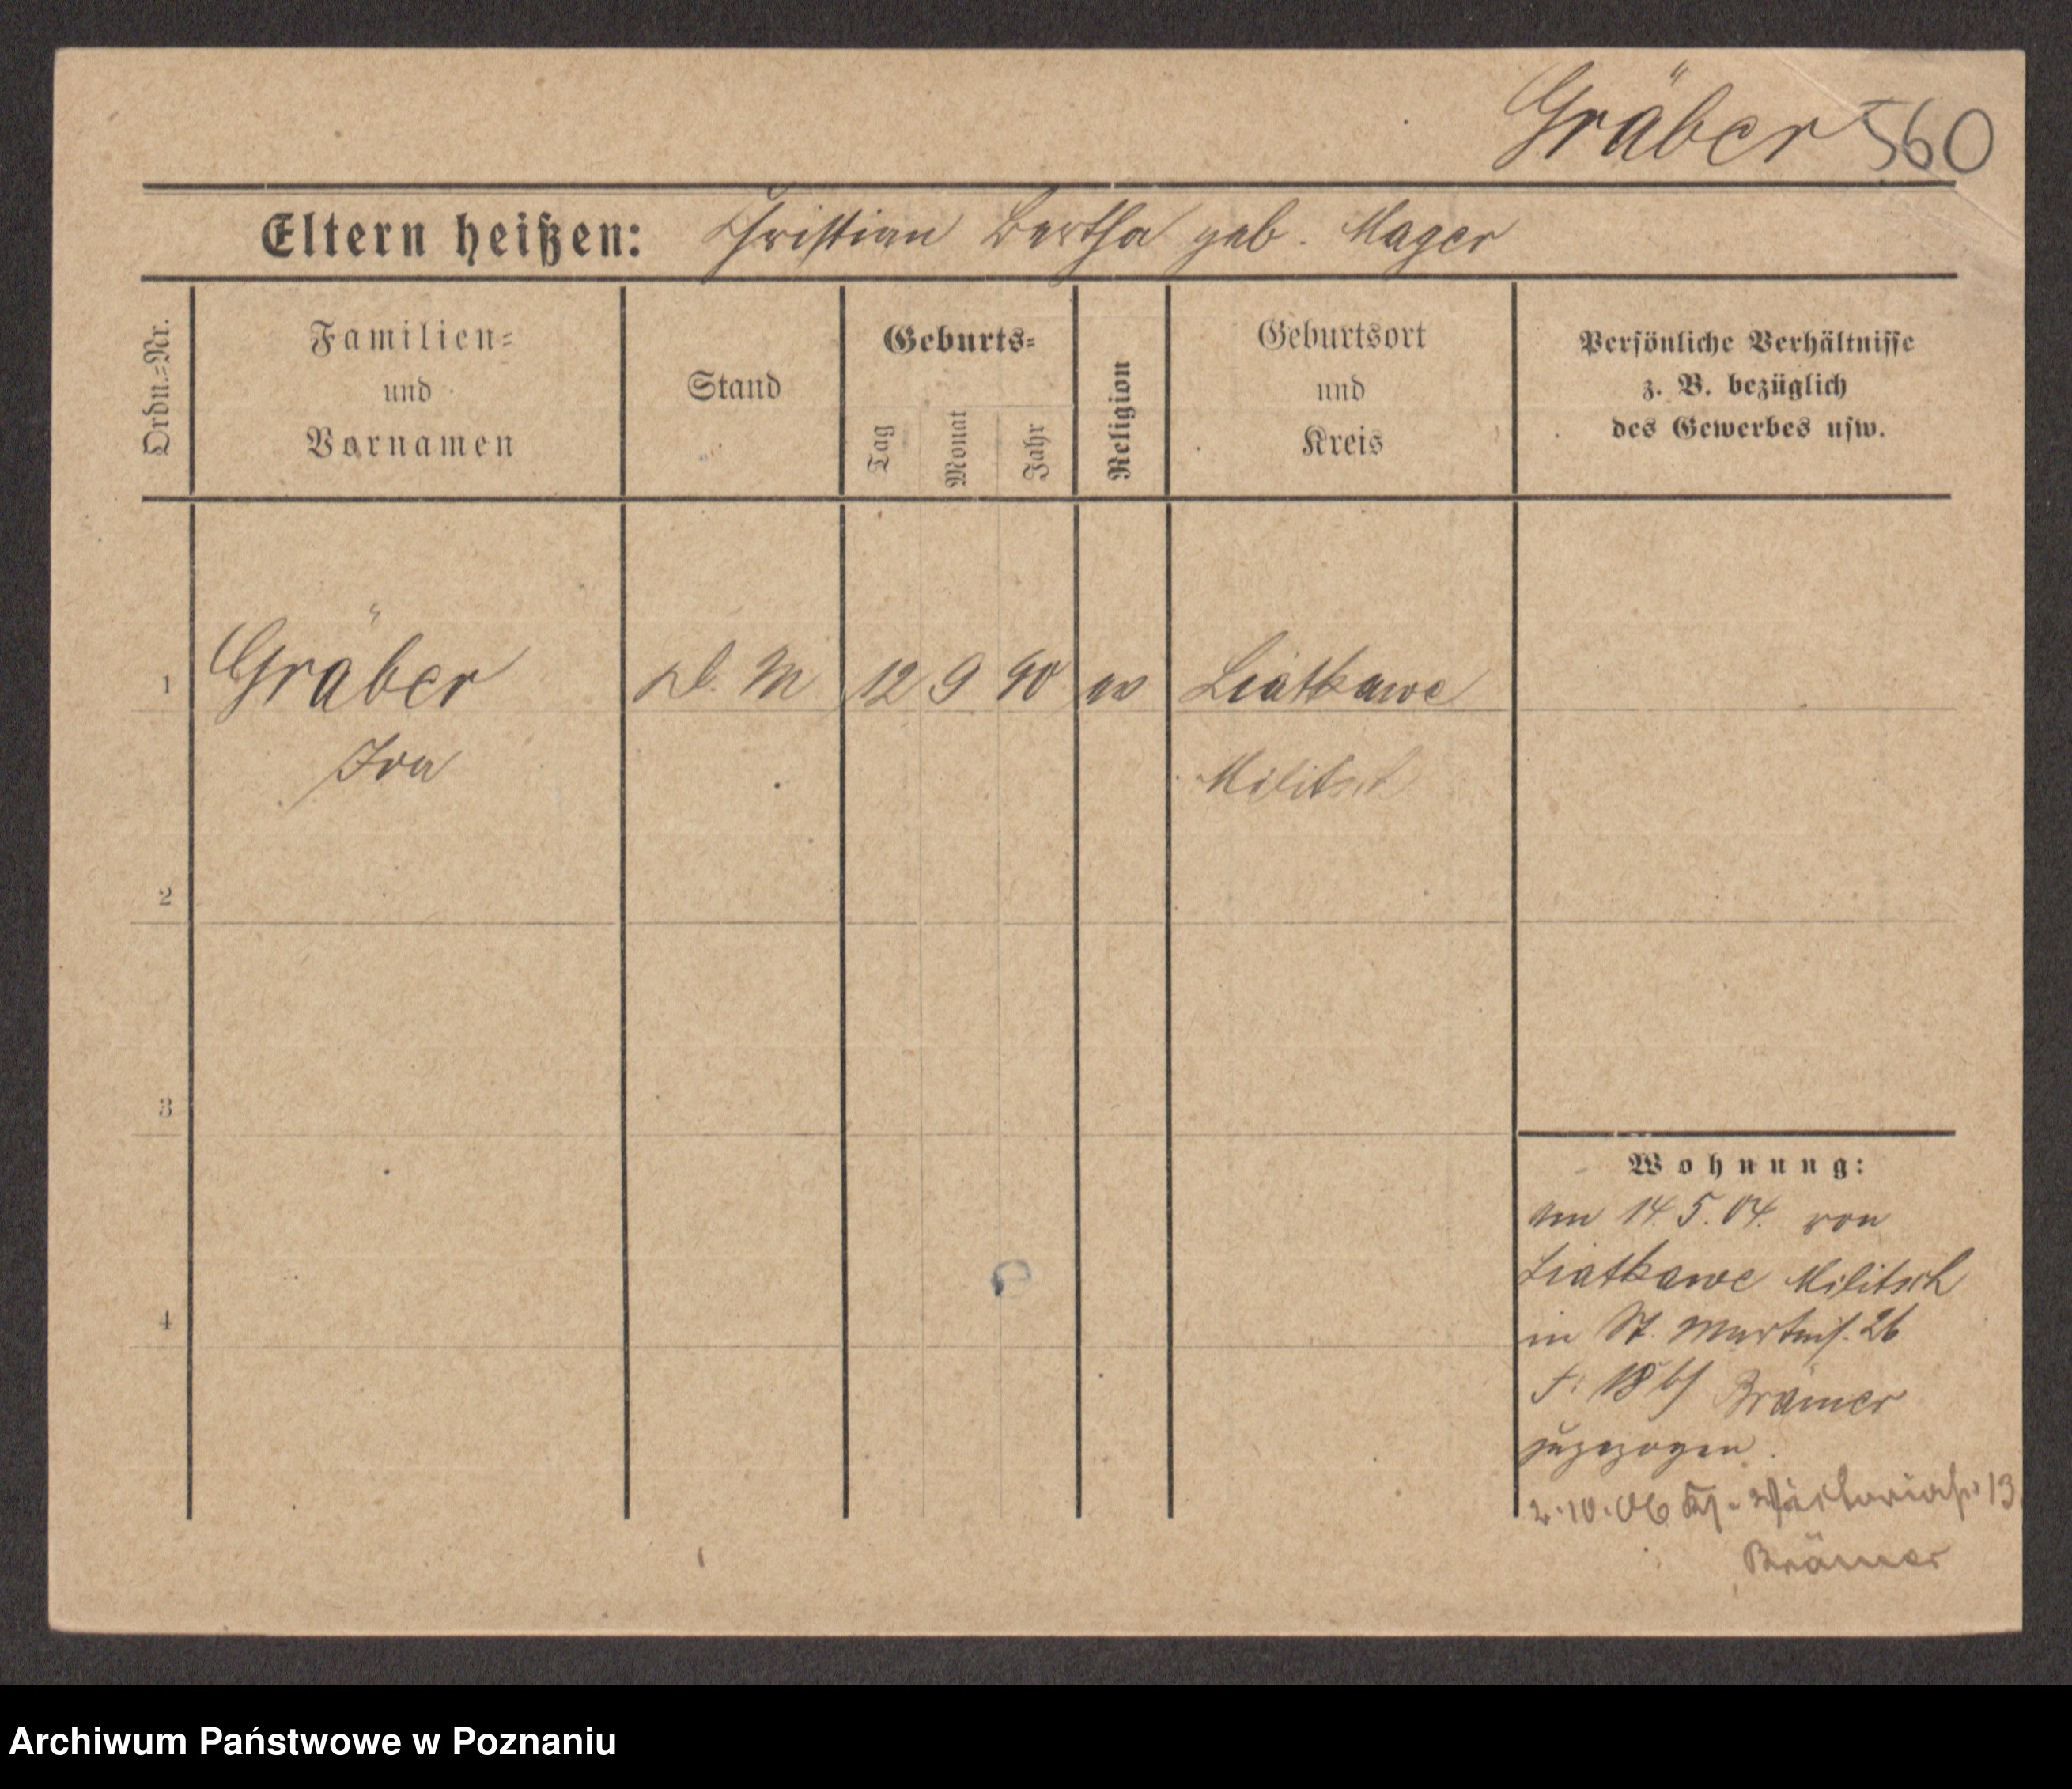 Gräber 560
Eltern heißen: Christian Bertha geb. Mager
Ordn.=Nr.
Familien=
und
Vornamen
Stand
Geburts=
Tag
Monat
Jahr
Religion
Geburtsort
und
Kreis
Persönliche Verhältnisse
z. B. bezüglich
des Gewerbes usw.
1 Gräber 12 9 90 ev Liatkawe
Militsch
2
3
4
Wohnung:
am 14.5.04. von
Liatkawe Militsch
in St. Martinst. 26
Brämer
zugezogen.
2.10.06 Viktoriastr 13
Brämer
Archiwum Państwowe w Poznaniu